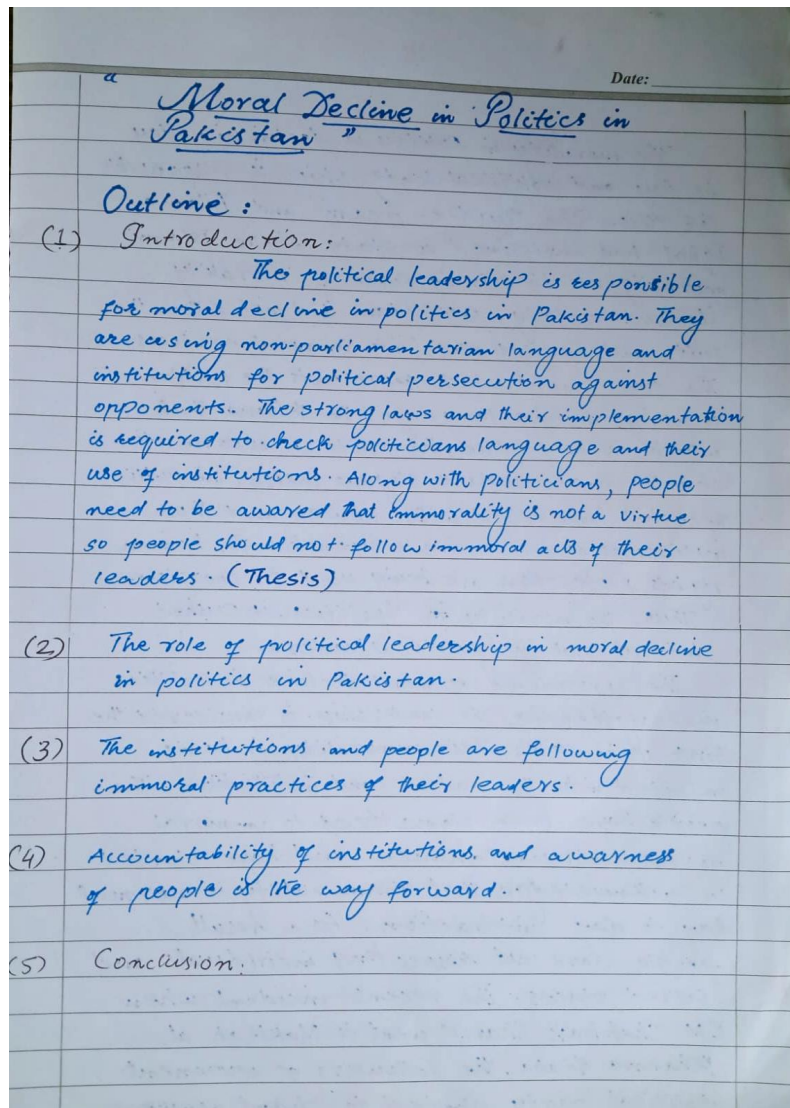 Date:
" Moral Decline in Politics in
Pakistan "
Outline :
(1) Introduction:
The political leadership is responsible
for moral decline in politics in Pakistan. They
are using non-parliamentarian language and
institutions for political persecution against
opponents. The strong laws and their implementation
is required to check politicians language and their
use of institutions. Along with politicians, people
need to be awared that immorality is not a virtue
so people should not follow immoral acts of their
leaders. (Thesis)
(2) The role of political leadership in moral decline
in politics in Pakistan.
(3) The institutions and people are following
immoral practices of their leaders.
(4) Accountability of institutions and awarness
of people is the way forward.
(5) Conclusion.